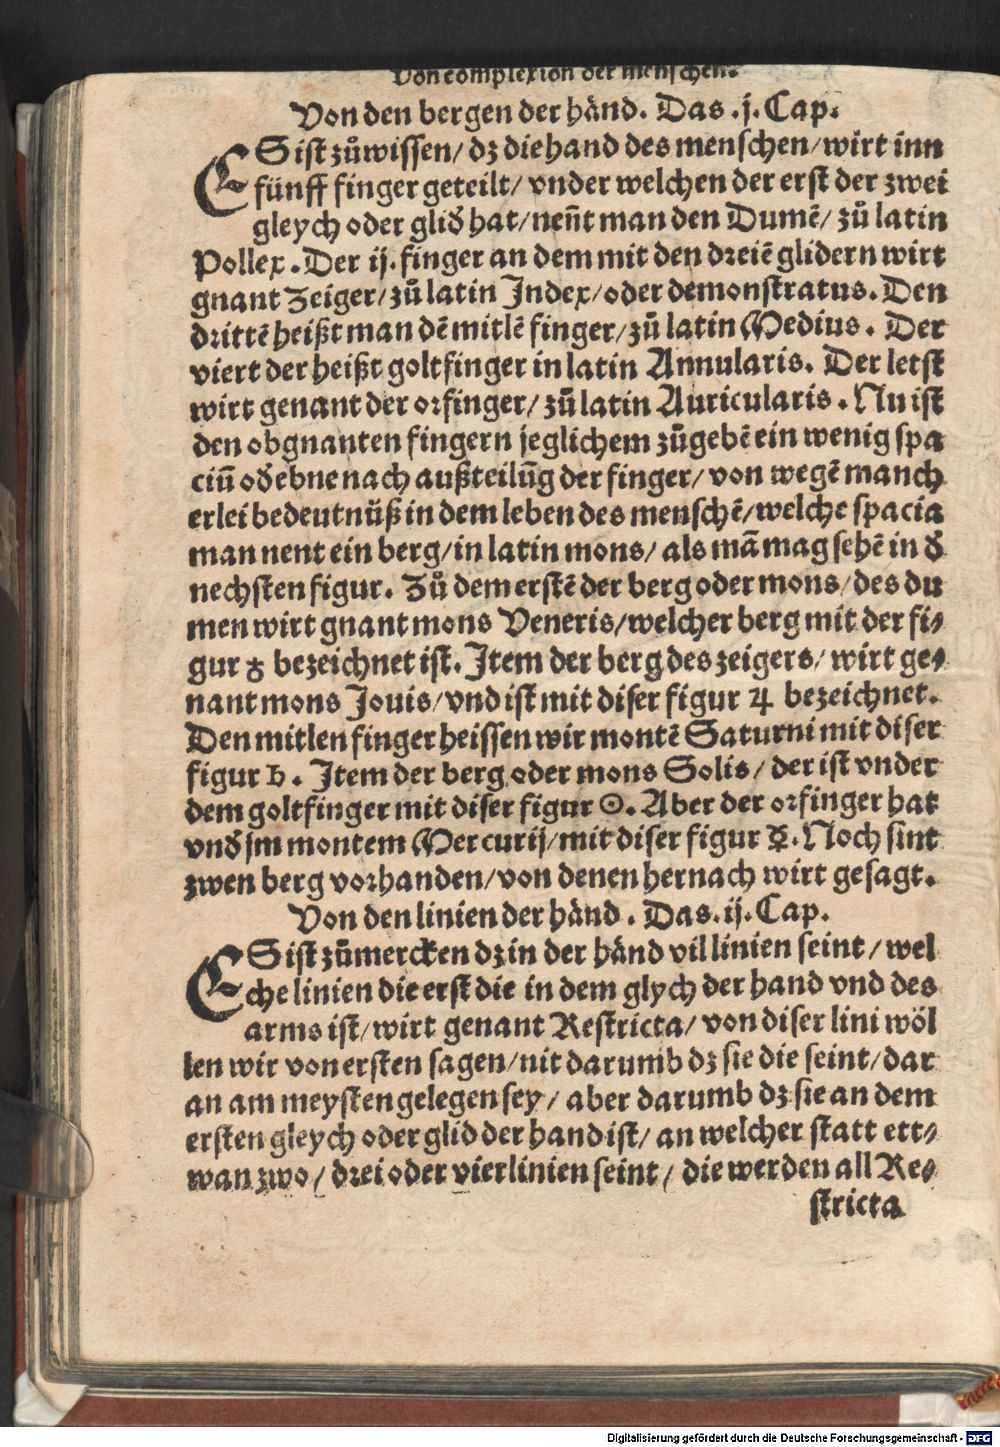 Von complexion der menschen.
Von den bergen der hånd. Das .j. Cap.
ES ist zůwissen/ dz die hand des menschen/ wirt inn
fünff finger geteilt/ vnder welchen der erst der zwei
gleych oder glid hat/ nen̄t man den Dumē/ zů latin
Pollex. Der ij. finger an dem mit den dreiē glidern wirt
gnant Zeiger/ zů latin Index/ oder demonstratus. Den
drittē heißt man dē mitlē finger/ zů latin Medius. Der
viert der heißt goltfinger in latin Annularis. Der letst
wirt genant der orfinger/ zů latin Auricularis. Nu ist
den obgnanten fingern jeglichem zůgebē ein wenig spa
ciū od ebne nach außteilūg der finger/ von wegē manch
erlei bedeutnüß in dem leben des menschē/ welche spacia
man nent ein berg/ in latin mons/ als mā mag sehē in d
nechsten figur. Zů dem erstē der berg oder mons/ des du
men wirt gnant mons Veneris/ welcher berg mit der fi⸗
gur ♀ bezeichnet ist. Item der berg des zeigers/ wirt ge⸗
nant mons Jouis/ vnd ist mit diser figur ♃ bezeichnet.
Den mitlen finger heissen wir montē Saturni mit diser
figur ♄. Item der berg oder mons Solis/ der ist vnder
dem goltfinger mit diser figur ☉. Aber der orfinger hat
vnd jm montem Mercurij/ mit diser figur ☿. Noch sint
zwen berg vorhanden/ von denen hernach wirt gesagt.
Von den linien der hånd. Das .ij. Cap.
ES ist zůmercken dz in der hånd vil linien seint/ wel
che linien die erst die in dem glych der hand vnd des
arms ist/ wirt genant Restricta/ von diser lini wöl
len wir von ersten sagen/ nit darumb dz sie die seint/ dar
an am meysten gelegen sey/ aber darumb dz sie an dem
ersten gleych oder glid der hand ist/ an welcher statt ett⸗
wan zwo/ drei oder vier linien seint/ die werden all Re⸗
stricta
Digitalisierung gefördert durch die Deutsche Forschungsgemeinschaft - DFG